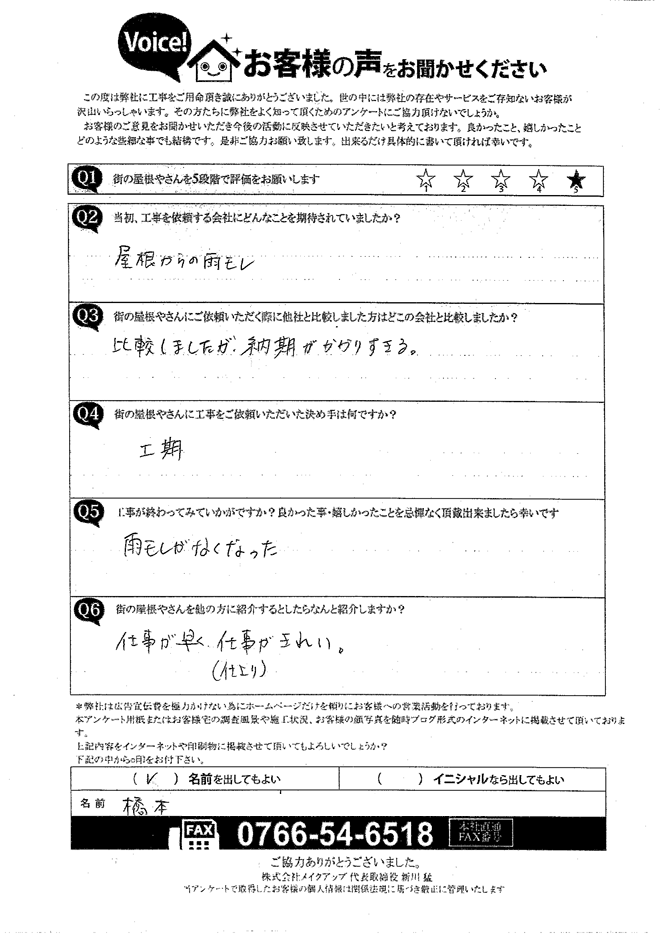 Voice!
お客様の声をお聞かせください
この度は弊社に工事をご用命頂き誠にありがとうございました。世の中には弊社の存在やサービスをご存知ないお客様が
沢山いらっしゃいます。その方たちに弊社をよく知って頂くためのアンケートにご協力頂けないでしょうか。
お客様のご意見をお聞かせいただき今後の活動に反映させていただきたいと考えております。良かったこと、嬉しかったこと
どのような些細な事でも結構です。是非ご協力お願い致します。出来るだけ具体的に書いて頂ければ幸いです。
Q1 街の屋根やさんを5段階で評価をお願いします ☆1 ☆2 ☆3 ☆4 ★5
Q2 当初、工事を依頼する会社にどんなことを期待されていましたか？
屋根からの雨モレ
Q3 街の屋根やさんにご依頼いただく際に他社と比較しました方はどこの会社と比較しましたか？
比較しましたが、納期がかかりすぎる。
Q4 街の屋根やさんに工事をご依頼いただいた決め手は何ですか？
工期
Q5 工事が終わってみていかがですか？良かった事・嬉しかったことを忌憚なく頂戴出来ましたら幸いです
雨モレがなくなった
Q6 街の屋根やさんを他の方に紹介するとしたらなんと紹介しますか？
仕事が早く、仕事がきれい。
(仕上り)
＊弊社は広告宣伝費を極力かけない為にホームページだけを頼りにお客様への営業活動を行っております。
本アンケート用紙またはお客様宅の調査風景や施工状況、お客様の顔写真を随時ブログ形式のインターネットに掲載させて頂いておりま
す。
上記内容をインターネットや印刷物に掲載させて頂いてもよろしいでしょうか？
下記の中から○印をお付下さい。
(✓) 名前を出してもよい ( ) イニシャルなら出してもよい
名前 橋本
FAX 0766-54-6518 本社直通 FAX番号
ご協力ありがとうございました。
株式会社メイクアップ 代表取締役 新川 猛
当アンケートで取得したお客様の個人情報は関係法規に基づき厳正に管理いたします